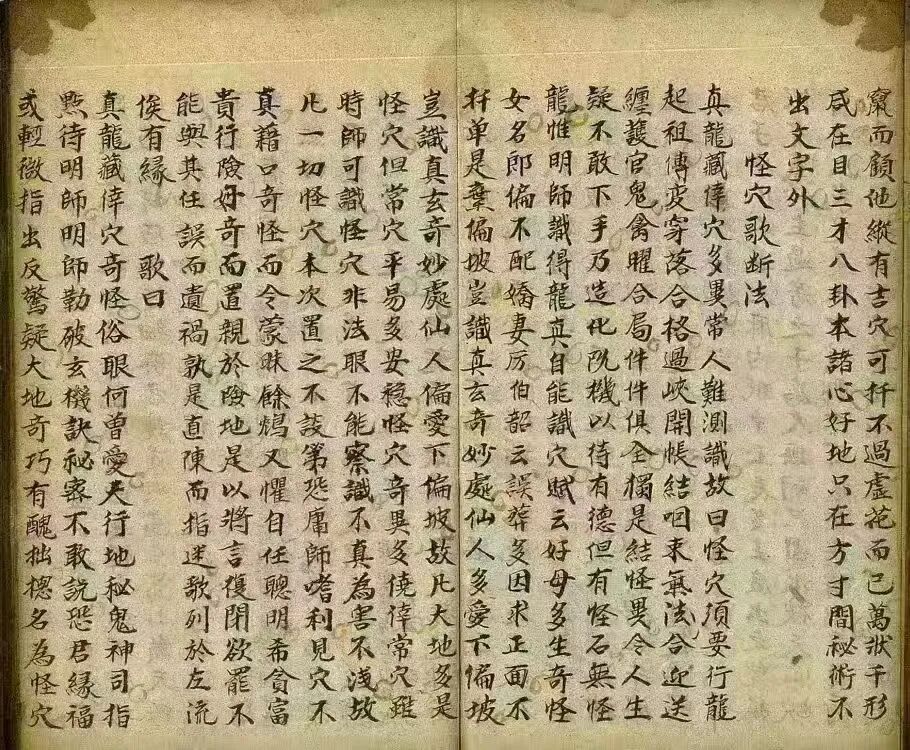 窩而顧他縱有吉穴可扦不過虛花而已萬狀千形
咸在目三才八卦本諸心好地只在方寸間秘術不
出文字外
怪穴歌断法
真龍藏倖穴多異常人難測識故曰怪穴須要行龍
起祖傳变穿落合格過峽開帳結咽束氣法合迎送
纏護官鬼禽曜合局件件俱全獨是結怪異令人生
疑不敢下手乃造化阮機以待有德但有怪石無怪
龍惟明師識得龍真自能識穴賦云好母多生奇怪
女名郎偏不配嬌妻厉伯韶云誤葬多因求正面不
扦单是棄偏坡豈識真玄奇妙處仙人多愛下偏坡
豈識真玄奇妙處仙人偏愛下偏坡故凡大地多是
怪穴但常穴平易多安穏怪穴奇異多僥倖常穴雖
時師可識怪穴非法眼不能察識不真為害不浅故
凡一切怪穴本次置之不談第恐庸師嗜利見穴不
真藉口奇怪而令蒙昧餘鴆又懼自任聰明希貪富
貴行險好奇而置親於險地是以將言復閉欲罷不
能與其任誤而遺禍孰是直陳而指迷歌列於左流
俟有縁 歌曰
真龍藏倖穴奇怪俗眼何曽愛天行地秘鬼神司指
㸃待明師明師勒破玄機訣秘宻不敢說恐君縁福
或輕微指出反驚疑大地奇巧有醜拙揔名為怪穴